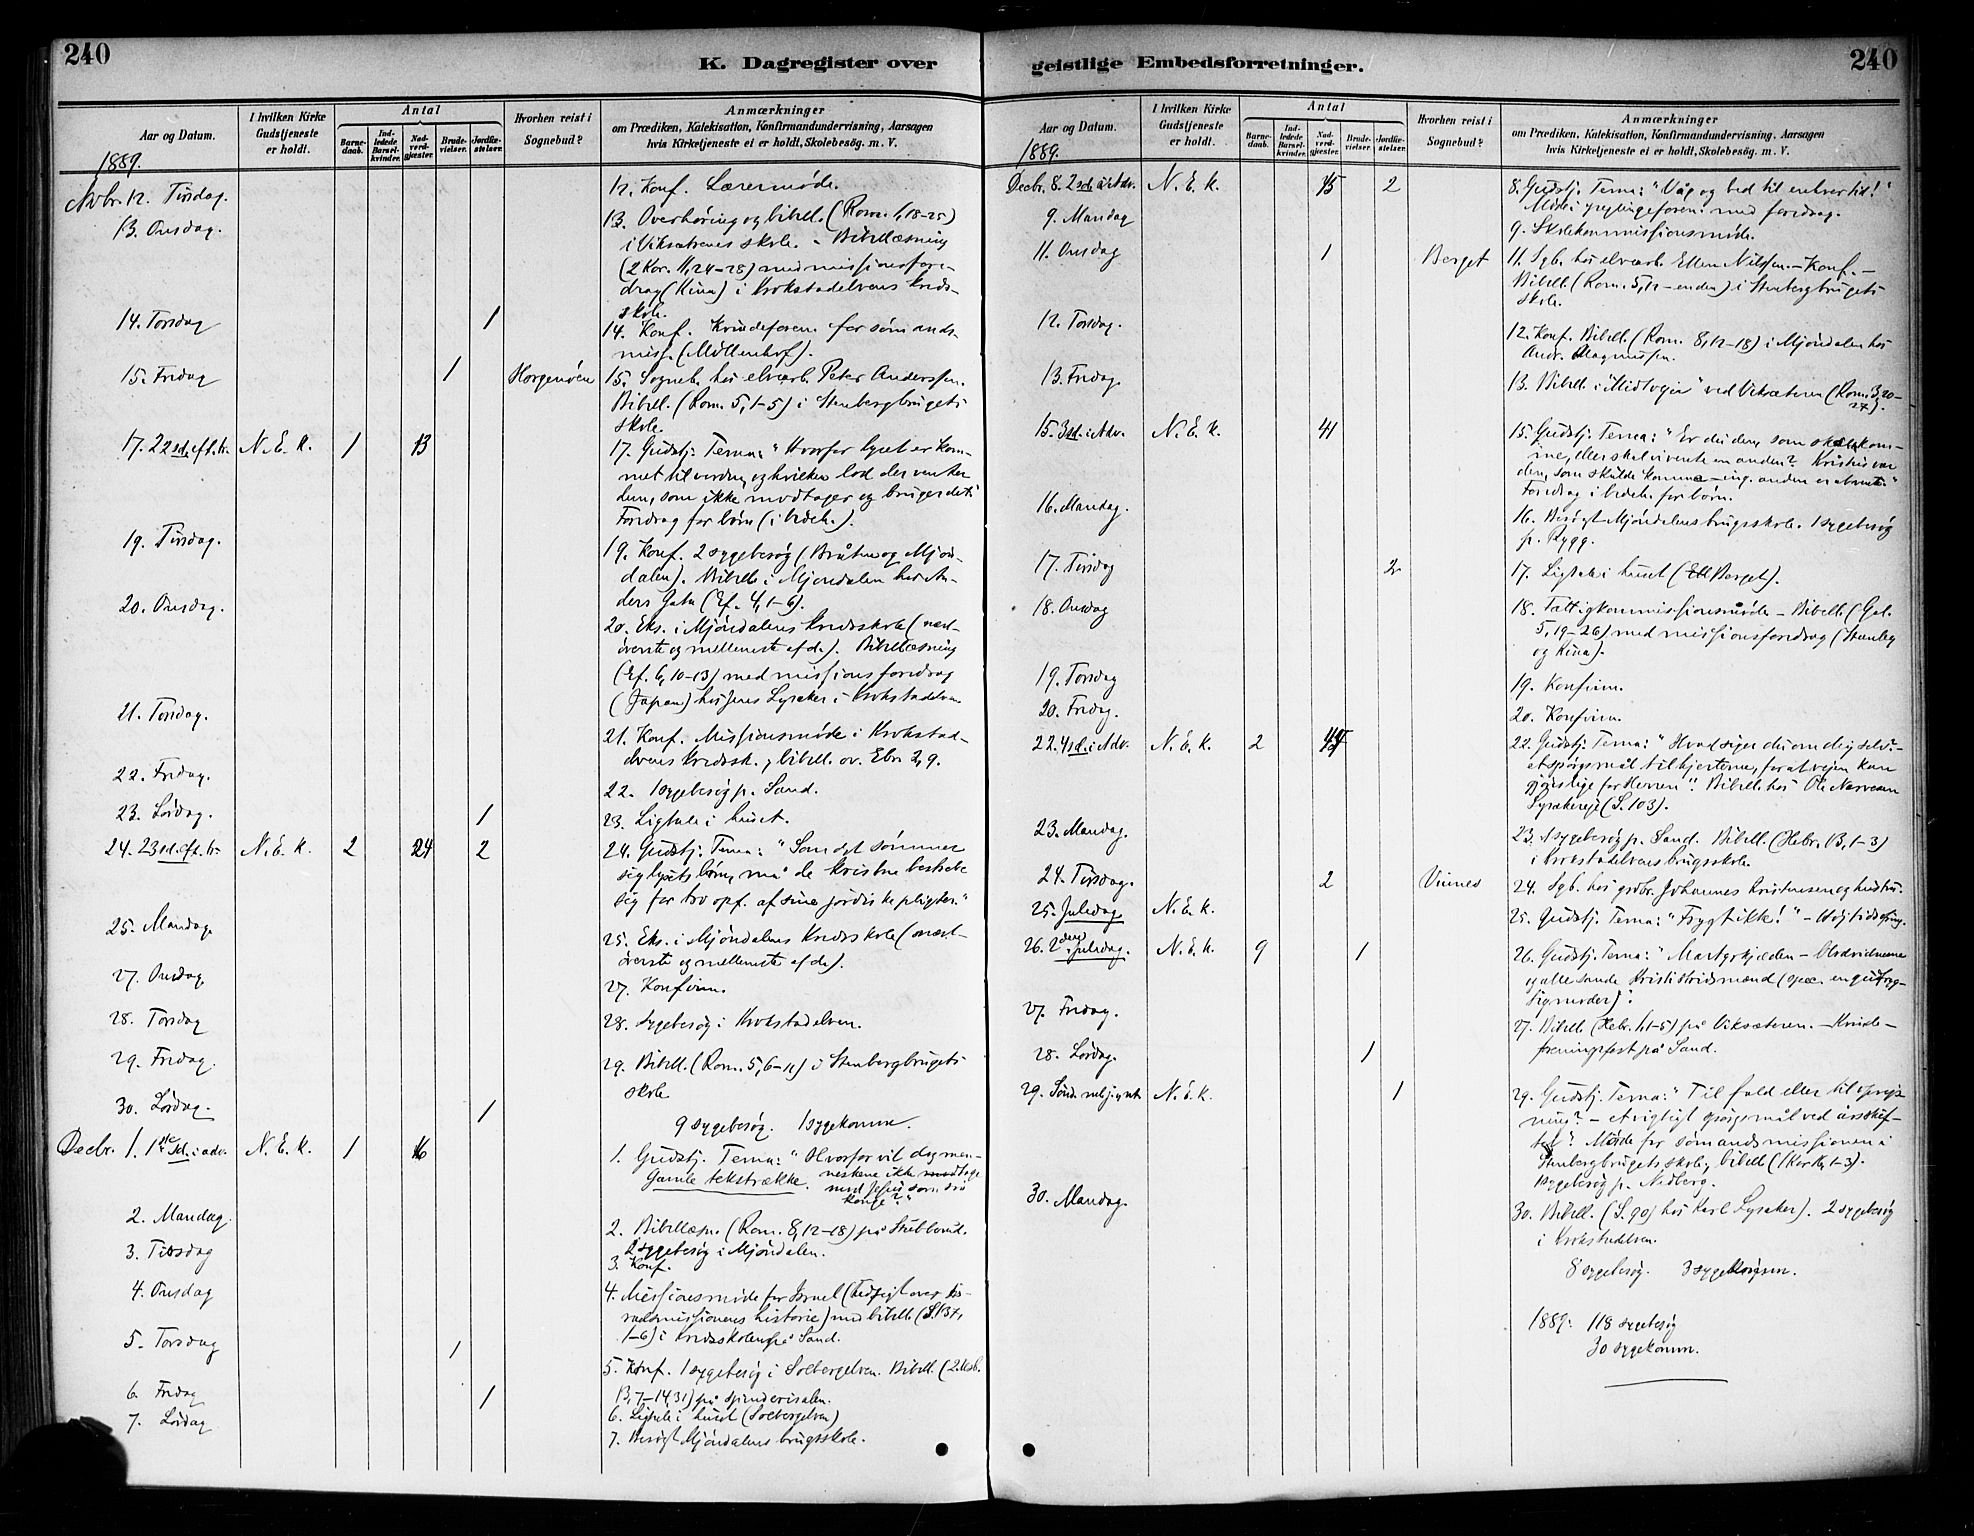 240
K. Dagregister over
Aar og Datum.
I hvilken Kirke Gudstjeneste er holdt.
Antal
Barnedaab.
Indledede Barselkvinder.
Nadverdgjester
Brudevielser.
Jordfæstelser.
Hvorhen reist i Sognebud?
Anmærkninger
om Prædiken, Katekisation, Konfirmandundervisning, Aarsagen
hvis Kirketjeneste ei er holdt, Skolebesøg. m. V.
1889.
Novbr. 12. Tirsdag.
12. Konf. Lærermøde.
13. Onsdag.
13. Overhøring og bibell. (Rom. 1, 18-25)
i Viksætrenes skole. - Bibellæsning
(2 Kor. 11, 24-28) med missionsfore-
drag (Kina) i Krokstadelvens kreds-
skole.
14. Torsdag 1
14. Konf. Kvindeforen. for sømands-
miss. (Møllenhof).
15. Fredag 1 Horgenøen
15. Sogneb. hos elvearb. Peter Anderssen.
Bibell. (Rom. 5, 1-5) i Stenbergbrugets
skole.
17. 22 sd. eft. tr. N. E. K. 1 13
17. Gudstj. Tema: "Hvorfor lyset er kom-
met til verden, og hvilken lod der venter
dem, som ikke modtager og bruger det."
Foredrag for børn (i bedeh.).
19. Tirsdag.
19. Konf. 2 sygebesøg (Bråten og Mjøn-
dalen). Bibell. i Mjøndalen hos An-
ders Gata (Ef. 4, 1-6).
20. Onsdag.
20. Eks. i Mjøndalens kredsskole (næst-
øverste og mellemste afd.). Bibellæsning
(Ef. 6, 10-13) med missionsforedrag
(Japan) hos Jens Lysaker i Krokstadelven.
21. Torsdag.
21. Konf. Missionsmøde i Krokstad-
elvens kredssk., bibell. ov. Ebr. 2, 9.
22. Fredag.
22. 1 sygebesøg p. Sand.
23. Lørdag. 1
23. Ligtale i huset.
24. 23 sd. eft. tr. N. E. K. 2 24 2
24. Gudstj. Tema: "Som det sømmer
sig lysets børn, må de kristne bestræbe
sig for tro opf. af sine jordiske pligter."
25. Mandag
25. Eks. i Mjøndalens kredsskole (næst-
øverste og mellemste afd.).
27. Onsdag
27. Konfirm.
28. Torsdag
28. sygebesøg i Krokstadelven.
29. Fredag.
29. Bibell. (Rom. 5, 6-11) i Stenbergbrugets
skole
30. Lørdag. 1
9 sygebesøg. 1 sygekomm.
Decbr. 1. 1ste Sd. i adv. N. E. K. 1 16
1. Gudstj. Tema: "Hvorfor vil dog men-
neskene ikke modtage
Gamle tekstrække. med Jesus som sin
konge?"
2. Mandag.
2. Bibellæsn. (Rom. 8, 12-18) på Stubberud.
2 sygebesøg i Mjøndalen.
3. Tirsdag
3. Konf.
4. Onsdag
4. Missionsmøde for Israel (Udsigt over Is-
raelsmissionens historie) med bibell. (S. 137,
1-6) i kredsskolen på Sand.
5. Torsdag 1
5. Konf. 1 sygebesøg i Solbergelven. Bibell. (2 Mosb.
13, 7-14, 31) på spinderisalen.
6. Fredag 1
6. Ligtale i huset (Solbergelven)
7. Lørdag
7. Besøgt Mjøndalens brugsskole.
240
geistlige Embedsforretninger.
Aar og Datum.
I hvilken Kirke Gudstjeneste er holdt.
Antal
Barnedaab.
Indledede Barselkvinder.
Nadverdgjester
Brudevielser.
Jordfæstelser.
Hvorhen reist i Sognebud?
Anmærkninger
om Prædiken, Katekisation, Konfirmandundervisning, Aarsagen
hvis Kirketjeneste ei er holdt, Skolebesøg. m. V.
1889.
Decbr. 8. 2 sd. i Adv. N. E. K. 15 2
8. Gudstj. Tema: "Våg og bed til enhver tid!"
Møde i ynglingeforen. med foredrag.
9. Mandag
9. Skolekommissionsmøde.
11. Onsdag 1 Berget
11. Sgb. hos elvearb. Ellen Nilssen. - Konf. -
Bibell. (Rom. 5, 12 - enden) i Stenbergbrugets
skole.
12. Torsdag.
12. Konf. Bibell. (Rom. 8, 12-18) i Mjøndalen hos
Andr. Magnussen.
13. Fredag.
13. Bibell. i "Midtbyen" ved Viksæteren (Rom. 3, 20-
27).
15. 3 sd. i Adv. N. E. K. 41
15. Gudstj. Tema: "Er du den, som skal kom-
me, eller skal vi vente en anden? Kristus var
den, som skulde komme - ing. anden er at vente."
Foredrag i bedeh. for børn.
16. Mandag.
16. Besøgt Mjøndalens brugsskole. 1 sygebesøg
p. Rygg.
17. Tirsdag 2
17. Ligtale i huset (Berget).
18. Onsdag
18. Fattigkommissionsmøde - Bibell. (Gal.
5, 19-26) med missionsforedrag (Stanley
og Kina).
19. Torsdag
19. Konfirm.
20. Fredag.
20. Konfirm.
22. 4 sd. i Adv. N. E. K. 2
22. Gudstj. Tema: "Hvad siger du om dig selv? -
et spørgsmål til hjerterne, for at vejen kan
gjøres lige for Herren". Bibell. hos Ole Narvesen
Lysakereje (S. 103).
23. Mandag.
23. 1 sygebesøg p. Sand. Bibell. (Hebr. 13, 1-3)
i Krokstadelvens brugsskole.
24. Tirsdag. 2 Vinnes
24. Sgb. hos grdbr. Johannes Kristensen og hustru.
25. Juledag N. E. K.
25. Gudstj. Tema: "Frygt ikke!" - Højtidsofring.
26. 2den juledag. N. E. K. 9 1
26. Gudstj. Tema: "Martyrkjæden - Blodvidnerne
og alle sande Kristi stridsmænd (spec. en gudfryg-
tig moder)".
27. Fredag.
27. Bibell. (Hebr. 1, 1-5) på Viksæteren. - Kvinde-
foreningsfest på Sand.
28. Lørdag. 1
29. Sønd. ml. j. og nt. N. E. K. 1
29. Gudstj. Tema: "Til fald eller til oprejs-
ning? - et vigtigt spørgsmål ved årsskif-
tet". Møde for sømandsmissionen i
Stenbergbrugets skole, bibell. (1 Kor. 13, 1-3).
sygebesøg p. Nedberg.
30. Mandag.
30. Bibell. (S. 90) hos Karl Lysaker). 2 sygebesøg
i Krokstadelven.
8 sygebesøg. 3 sygekomm.
1889: 118 sygebesøg
30 sygekomm.